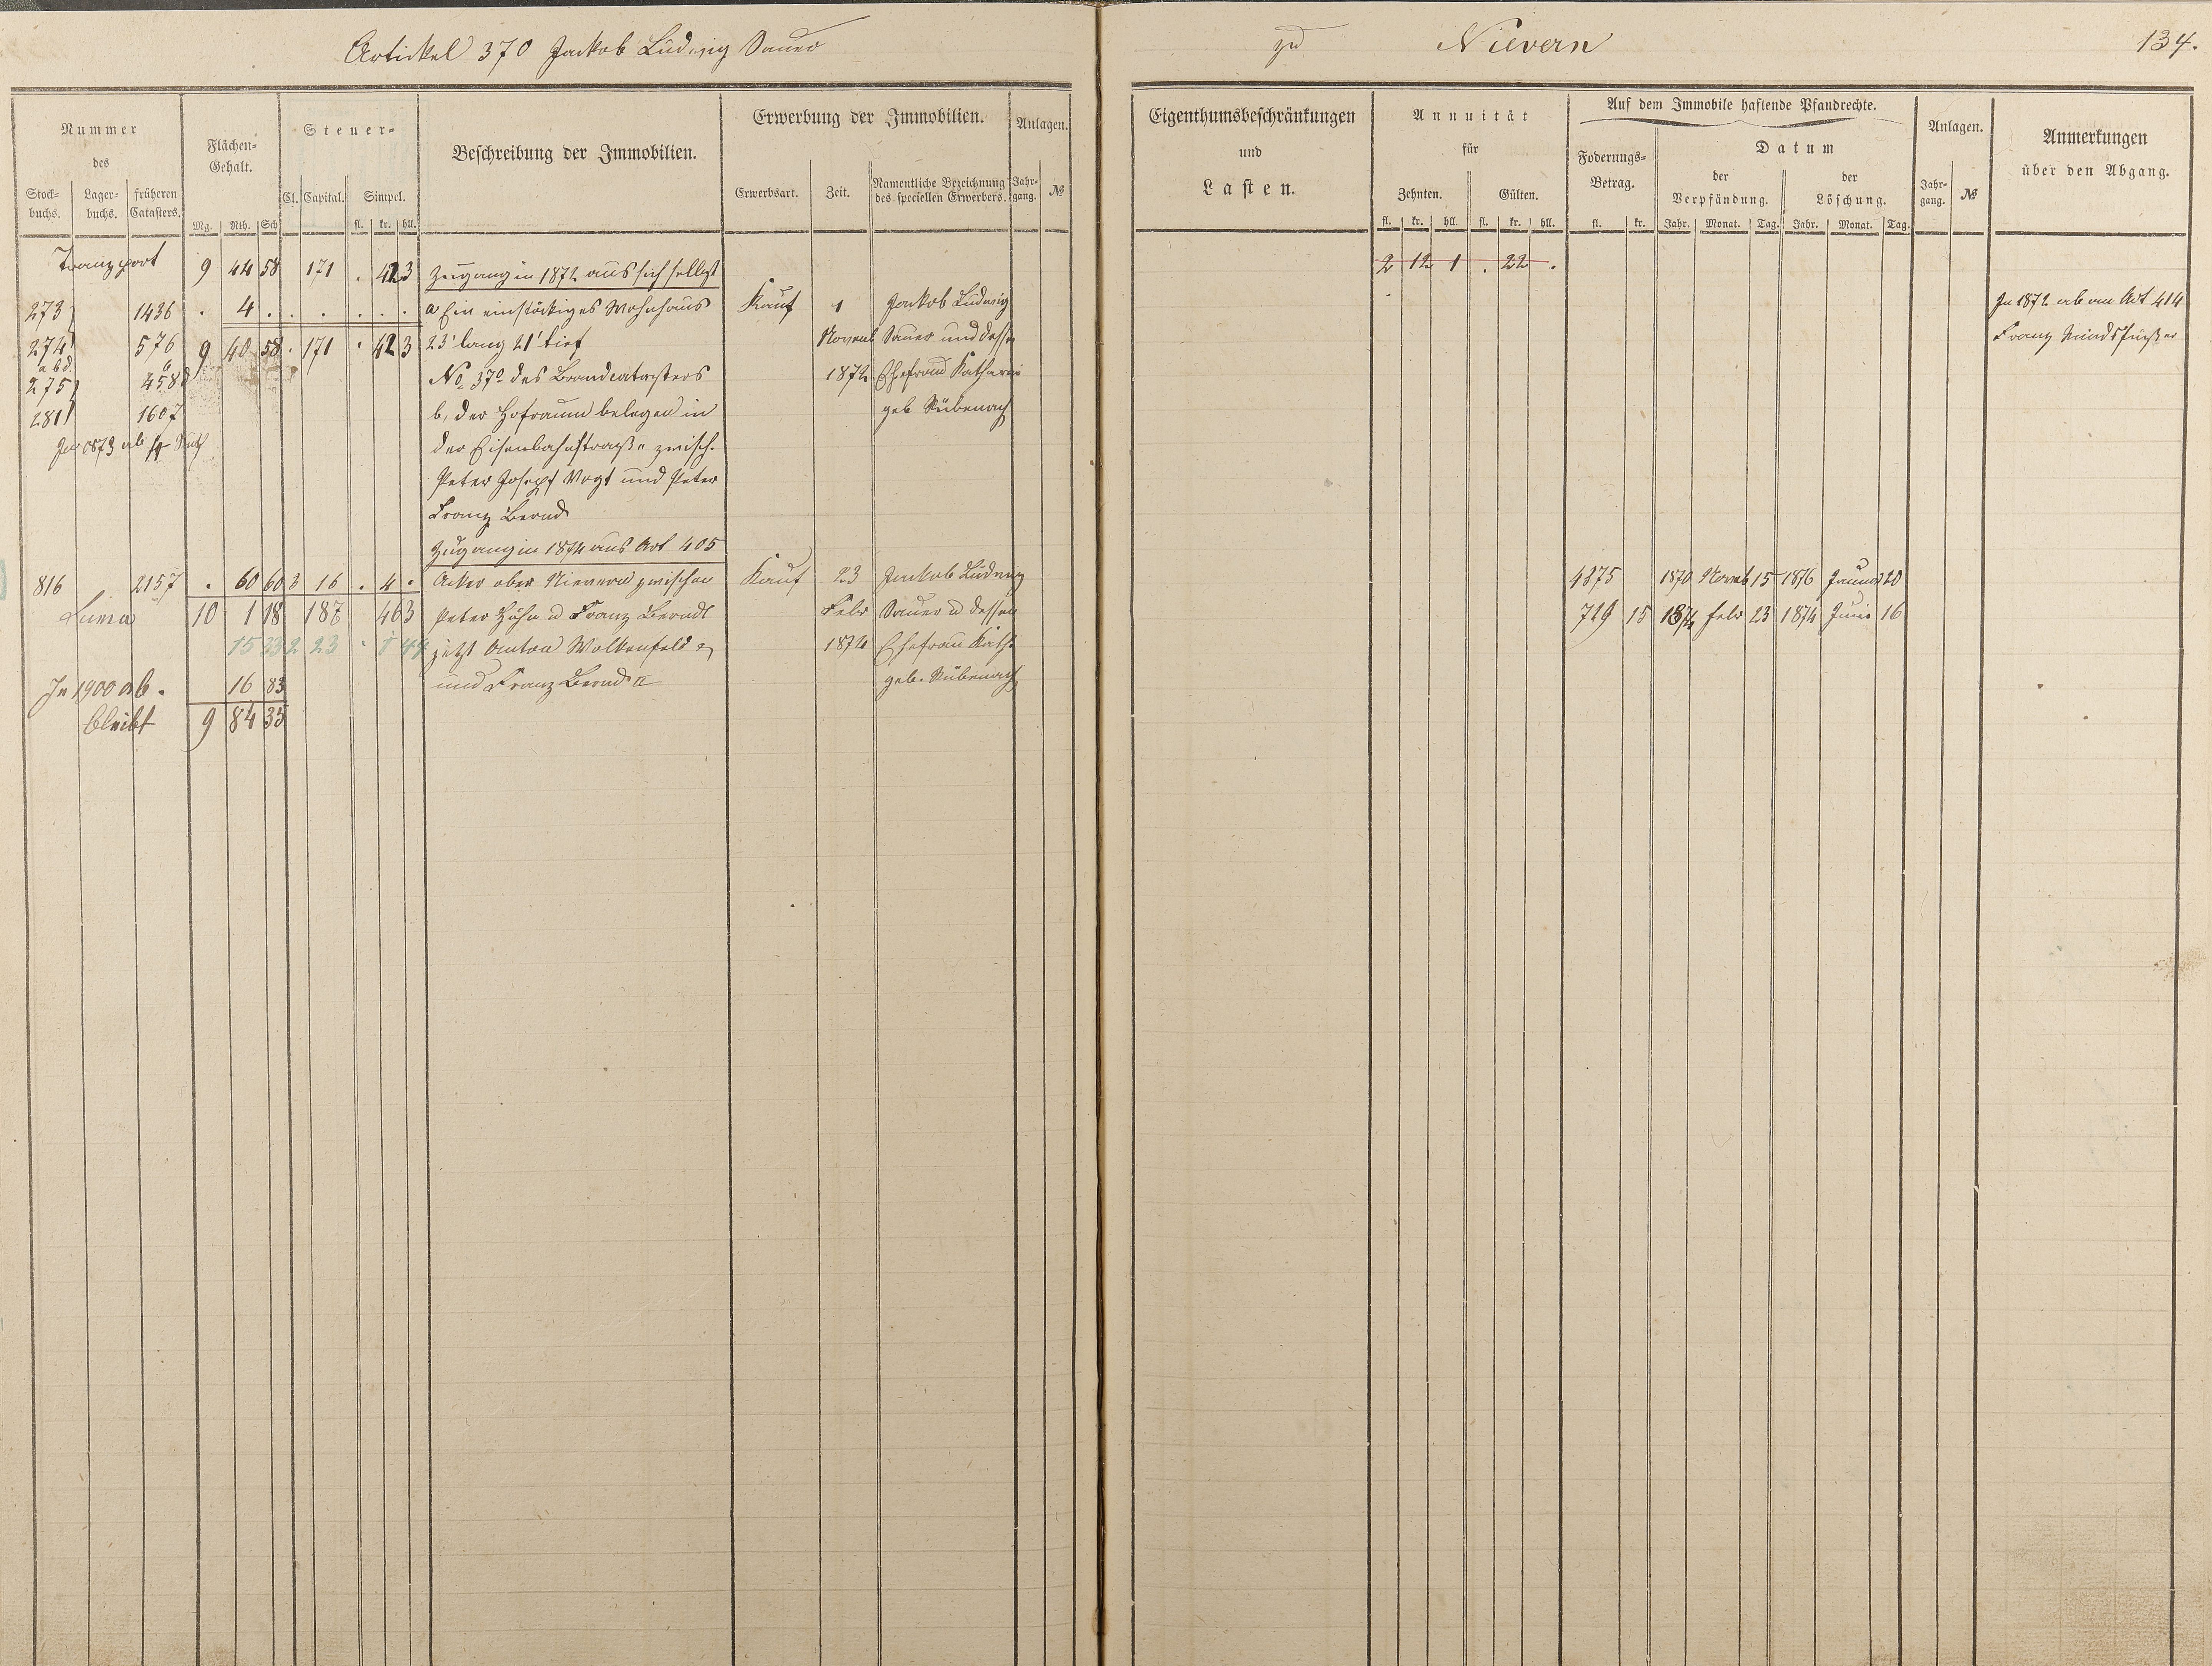 Artickel 370 Jackob Ludwig Sauer
zu Nievern 134.
Nummer
des
Stock-
buchs.
Lager-
buchs.
früheren
Catasters.
Flächen-
Gehalt.
Mg. Rth. Sch
Steuer-
Cl. Capital. Simpel.
fl. kr. hll.
Beschreibung der Immobilien.
Erwerbung der Immobilien.
Erwerbsart. Zeit.
Namentliche Bezeichnung
des speciellen Erwerbers.
Anlagen.
Jahr-
gang. №
Eigenthumsbeschränkungen
und
Lasten.
Annuität
für
Zehnten. Gülten.
fl. kr. hll. fl. kr. hll.
Auf dem Immobile haftende Pfandrechte.
Foderungs-
Betrag.
fl. kr.
Datum
der
Verpfändung.
der
Löschung.
Jahr. Monat. Tag. Jahr. Monat. Tag.
Anlagen.
Jahr-
gang. №
Anmerkungen
über den Abgang.
Transport 9 44 58 171 . 42 3 Zugang in 1872 aus sich selbst
2 12 1 . 22 .
273 1436 . 4 . . . . . . a Ein einstöckiges Wohnhaus Kauf 1 Jackob Ludwig
In 1872 ab an Art 414
274 576 9 40 58 . 171 . 42 3 23' lang 21' tief Novemb Sauer und dessen
Franz
a b d
275 458 No 370 des Brandcatasters 1872 Ehefrau Katharin
281 1607 b, der Hofraum belegen in geb Rübenach
In 1873 ab der Eisenbahnstraße zwisch.
Peter Josepf Vogt und Peter
Franz Bernd
Zugang in 1874 aus Art 405
816 2157 . 60 60 3 16 . 4 . Acker ober Nievern zwischen Kauf 23 Jackob Ludwig
4375 1870 Novmb 15 1876 Januar 20
Suma 10 1 18 187 46 3 Peter Höhn u Franz Berndt Febr Sauer u dessen
719 15 1874 febr 23 1874 Juni 16
15 33 2 23 . 1 44 jetzt Anton Wolkenfeld 1874 Ehefrau Kath.
In 1900 ab. 16 83 und Franz Bernd II geb. Rübenach
bleibt 9 84 35